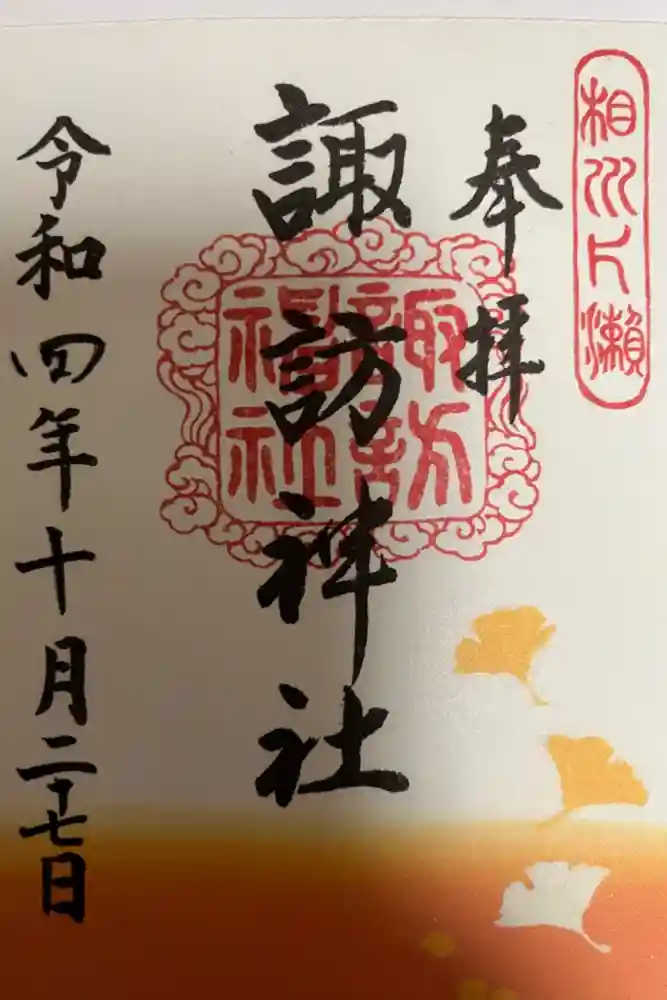 相州片瀬
奉拝
諏訪神社
諏訪
神社
令和四年十月二十七日